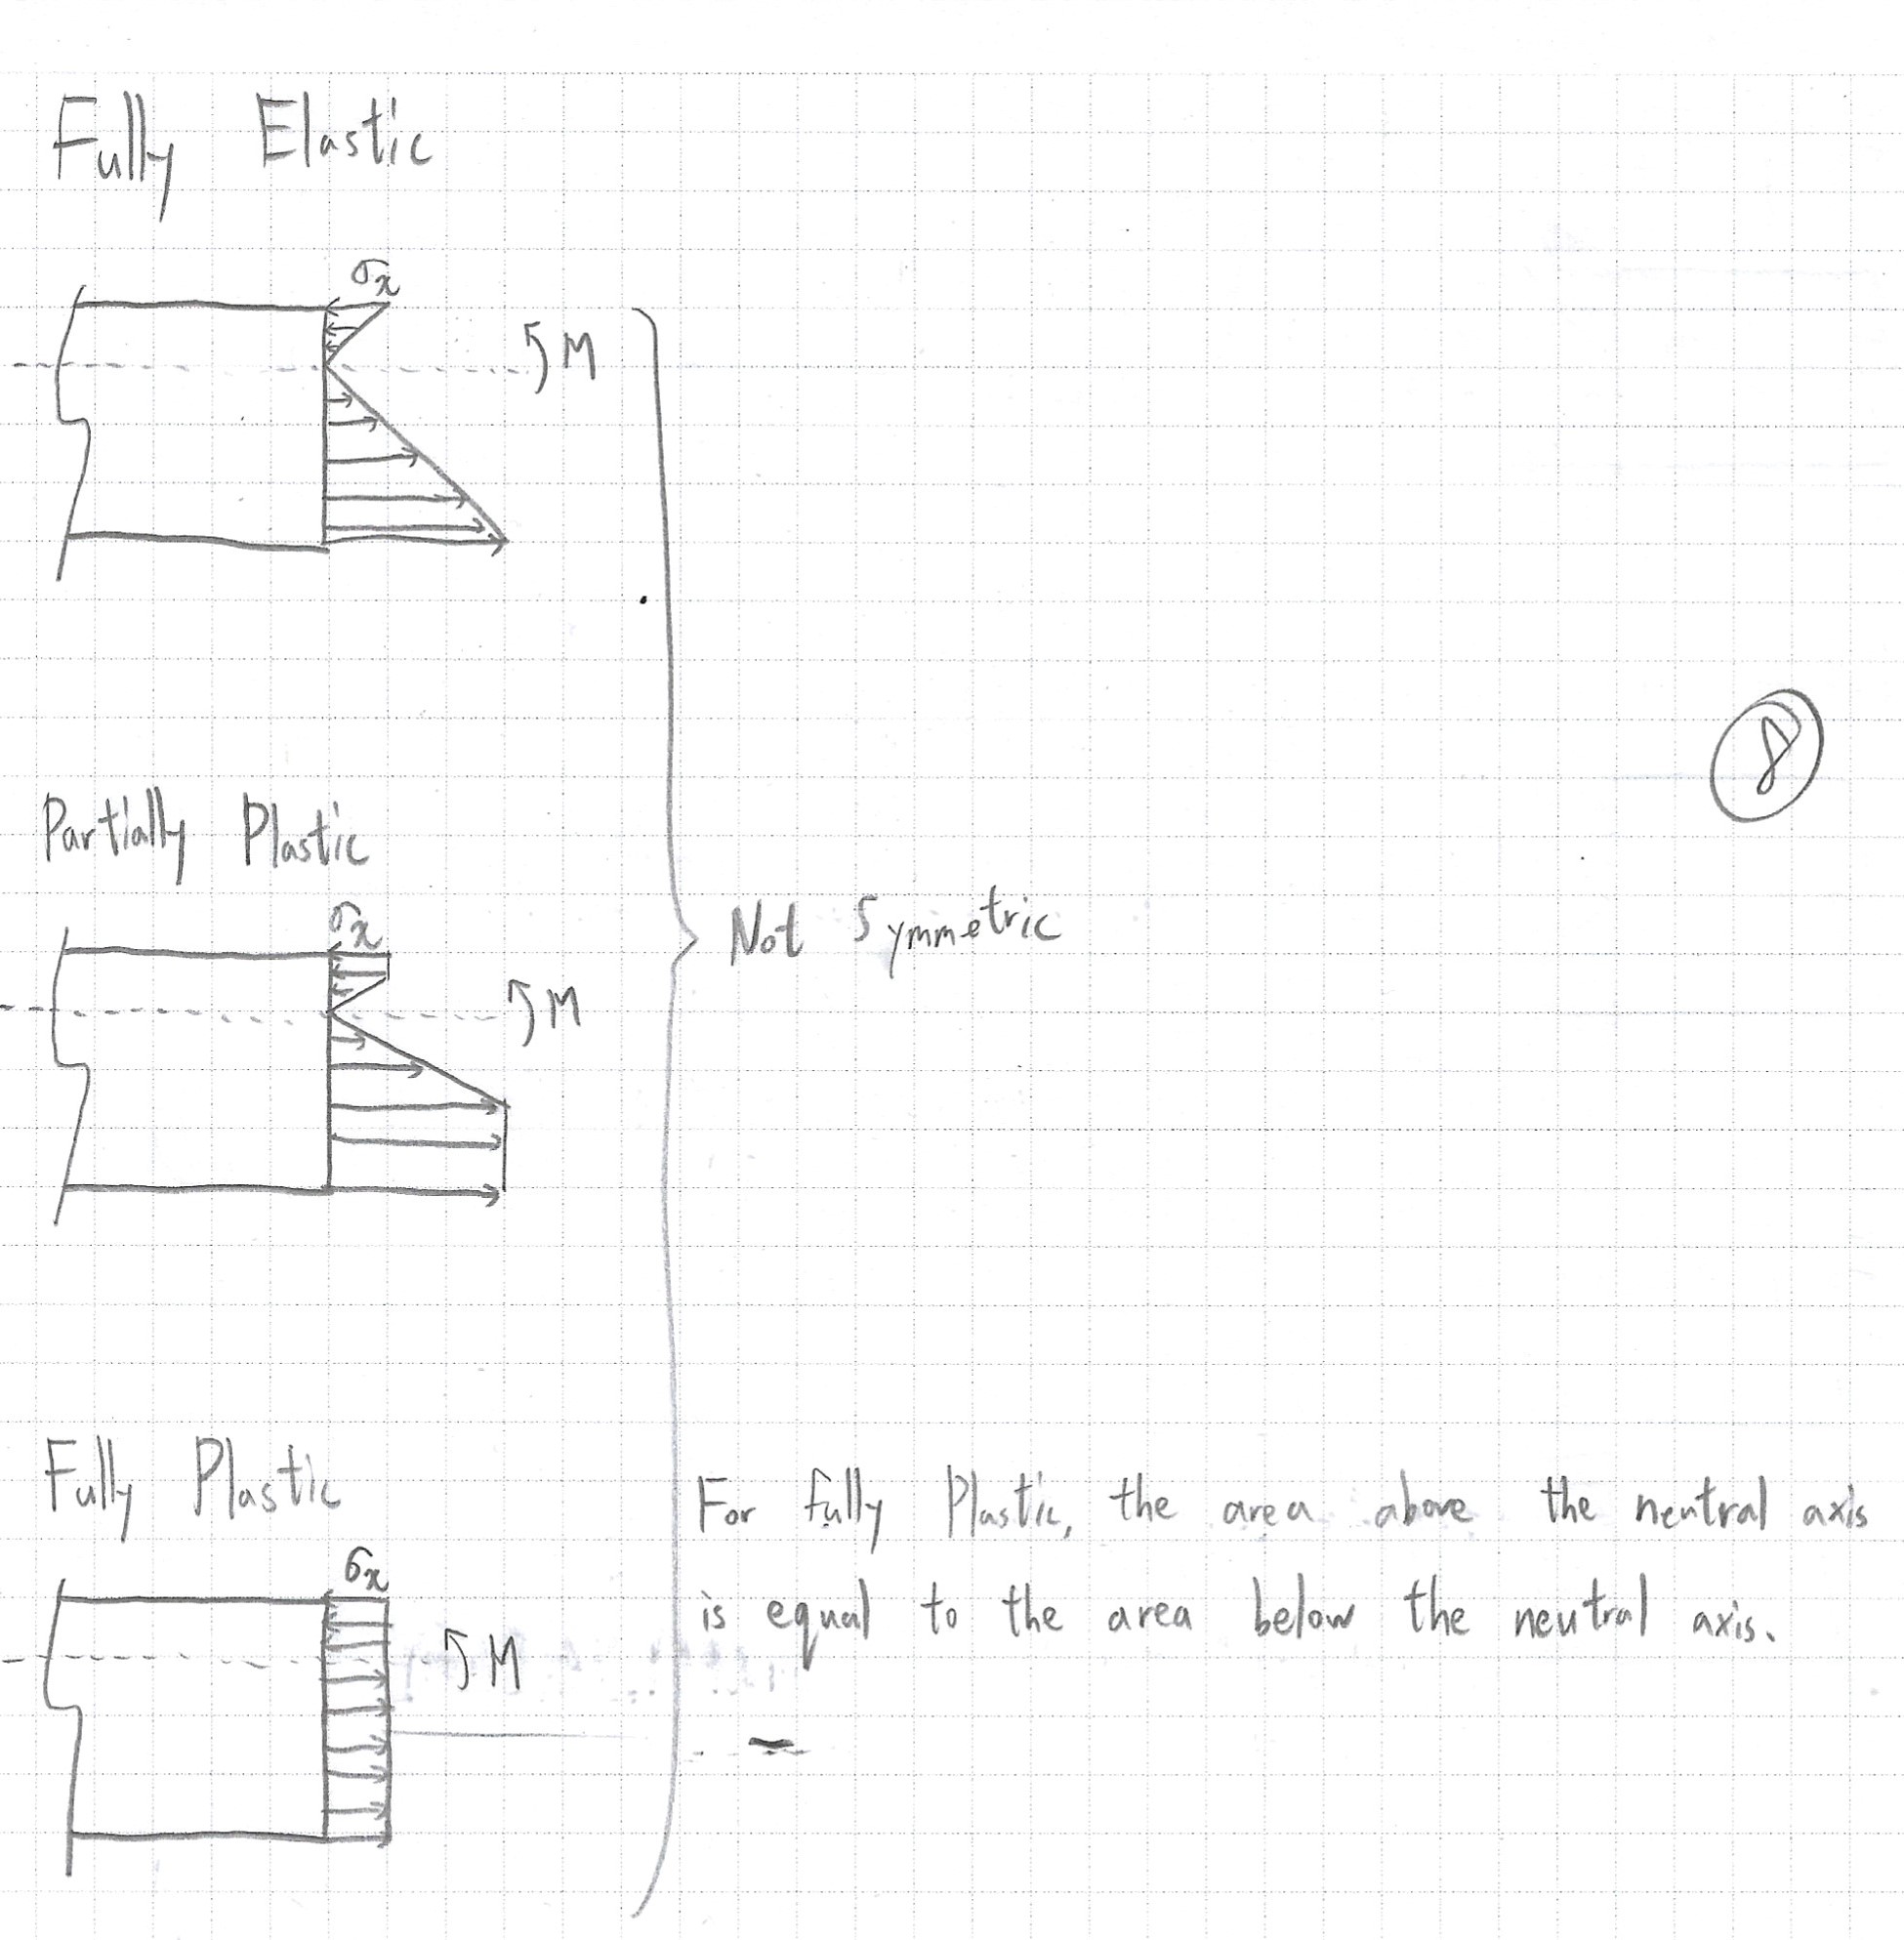 Fully Elastic
σx
M
8
Partially Plastic
σx
M
Not Symmetric
Fully Plastic
For fully Plastic, the area above the neutral axis
is equal to the area below the neutral axis.
σx
M